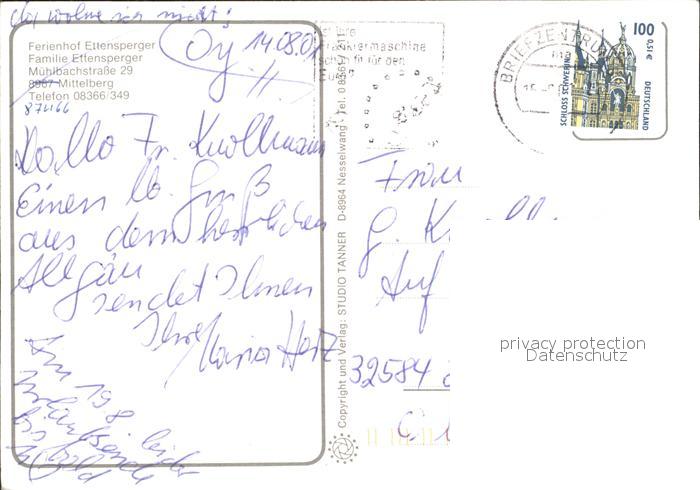 da wohne ich nicht!
Ferienhof Ettensperger
Familie Ettensperger
Mühlbachstraße 29
8967 Mittelberg
Telefon 08366/349
87466
Oy 14.08.01
Hallo Fr. Knollmann
Einen lb. Gruß
aus dem herrlichen
Allgäu
sendet Ihnen
Ihre
Maria Herz
Am 19.8
leider
bis bald
Copyright und Verlag: STUDIO TANNER D-8964 Nesselwang Tel. 0 83 61
Frankiermaschine
fit für den
Euro
BRIEFZENTRUM
100
0,51 €
SCHLOSS SCHWERIN
DEUTSCHLAND
Frau
G. K
Auf
32584
privacy protection
Datenschutz